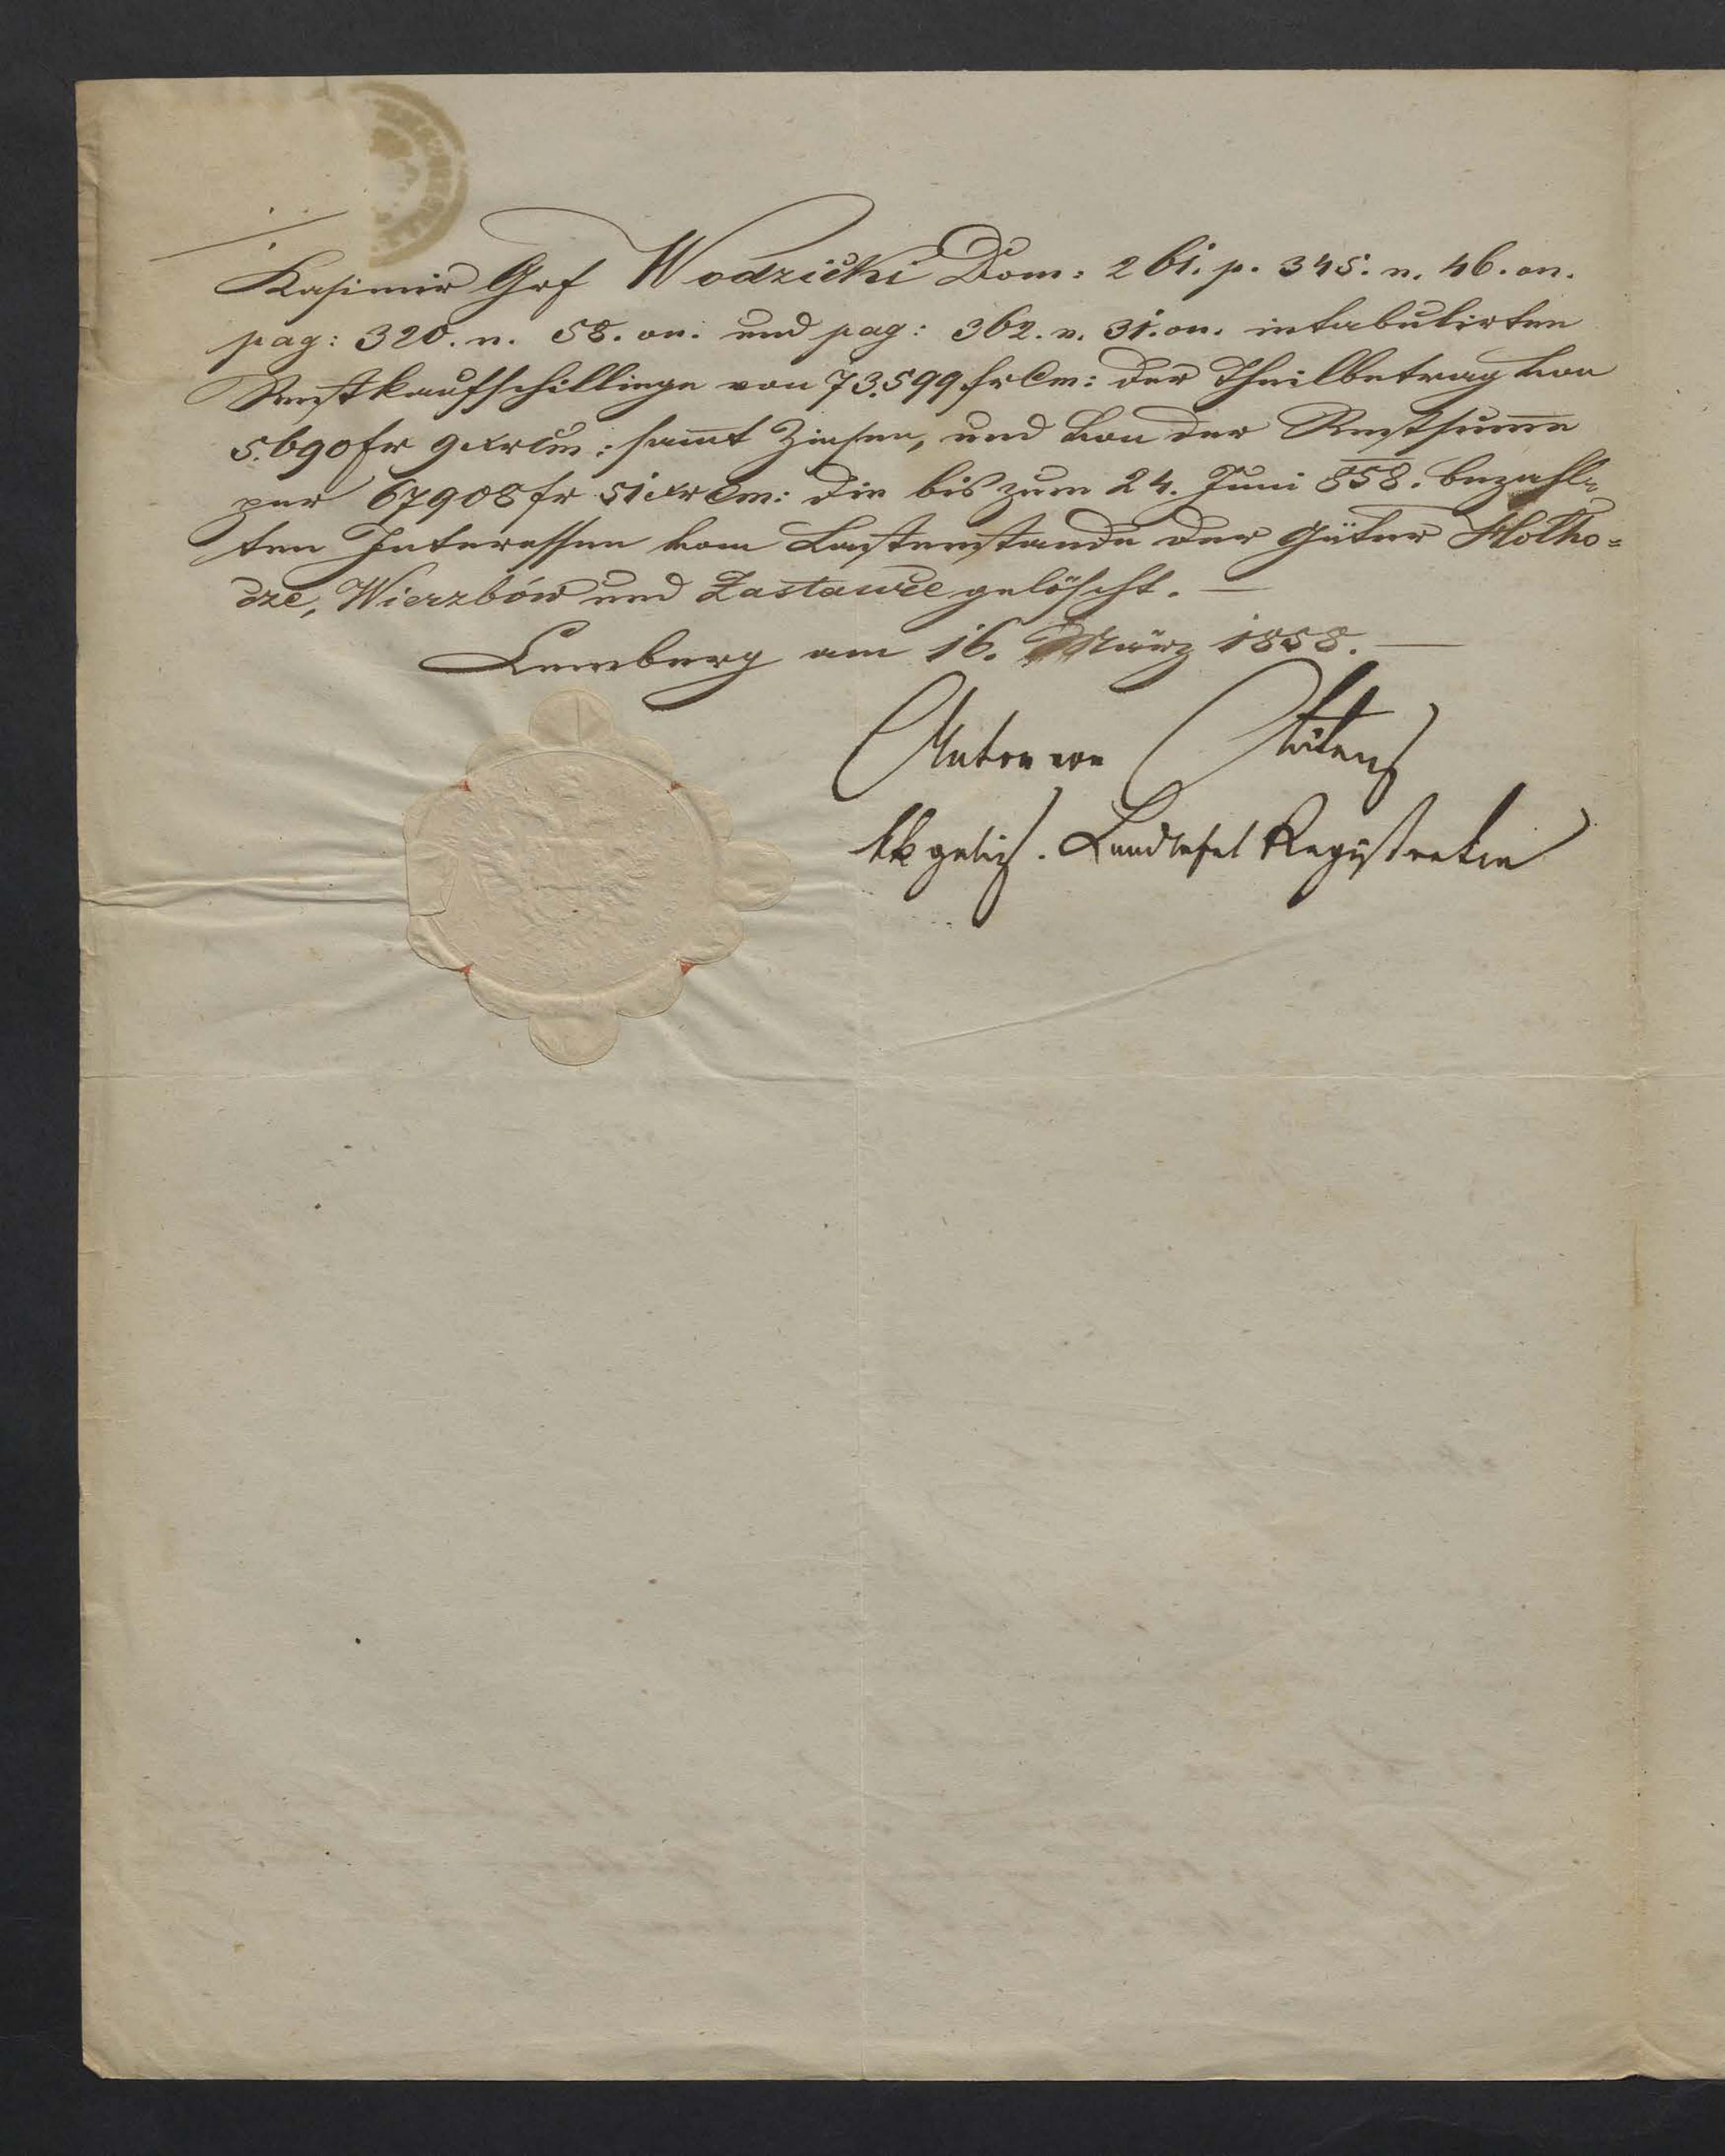 Kasimir Grf Wodzicki Dom: 261. p. 345. n. 46. on.
pag: 320. n. 58. on. und pag: 362. n. 31. on. intabulirten
Restkaufschillinge von 73.599 fr Cm: der Theilbetrag von
5.690 fr 9 xr Cm: samt Zinsen, und von der Restsumme
per 67908 fr 51 xr Cm: die bis zum 24. Juni 858. bezahl=
ten Interessen vom Lastenstande der Güter Hołho=
cze, Wierzbów und Zastawce gelöscht. —
Lemberg am 16. März 1858. —
Anton von
kk galiz. Landtafel Registrator